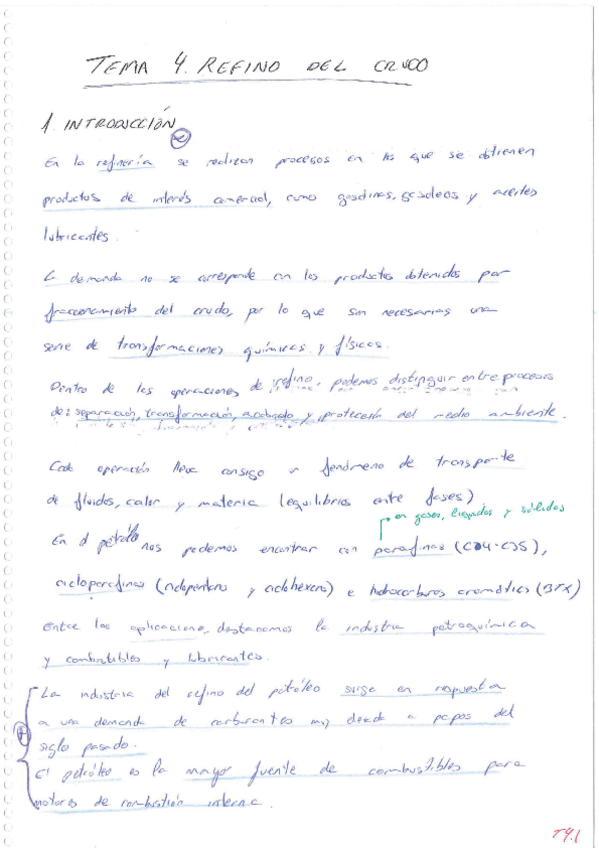 TEMA 4. REFINO DEL CRUDO
1. INTRODUCCIÓN
En la refinería se realizan procesos en los que se obtienen
productos de interés comercial, como gasolinas, gasóleos y aceites
lubricantes.
La demanda no se corresponde con los productos obtenidos por
fraccionamiento del crudo, por lo que son necesarias una
serie de transformaciones químicas y físicas.
Dentro de las operaciones de refino, podemos distinguir entre procesos
de: separación, transformación, acabado y protección del medio ambiente.
Cada operación lleva consigo un fenómeno de transporte
de fluidos, calor y materia (equilibrios entre fases)
en gases, líquidos y sólidos
En el petróleo nos podemos encontrar con parafinas
cicloparafinas (ciclopentano y ciclohexano) e hidrocarburos aromáticos (BTX)
Entre las aplicaciones, destacamos la industria petroquímica
y combustibles y lubricantes.
La industria del refino del petróleo surge en respuesta
a una demanda de carburantes muy desde a del
siglo pasado.
El petróleo es la mayor fuente de combustibles para
motores de combustión interna.
T4.1